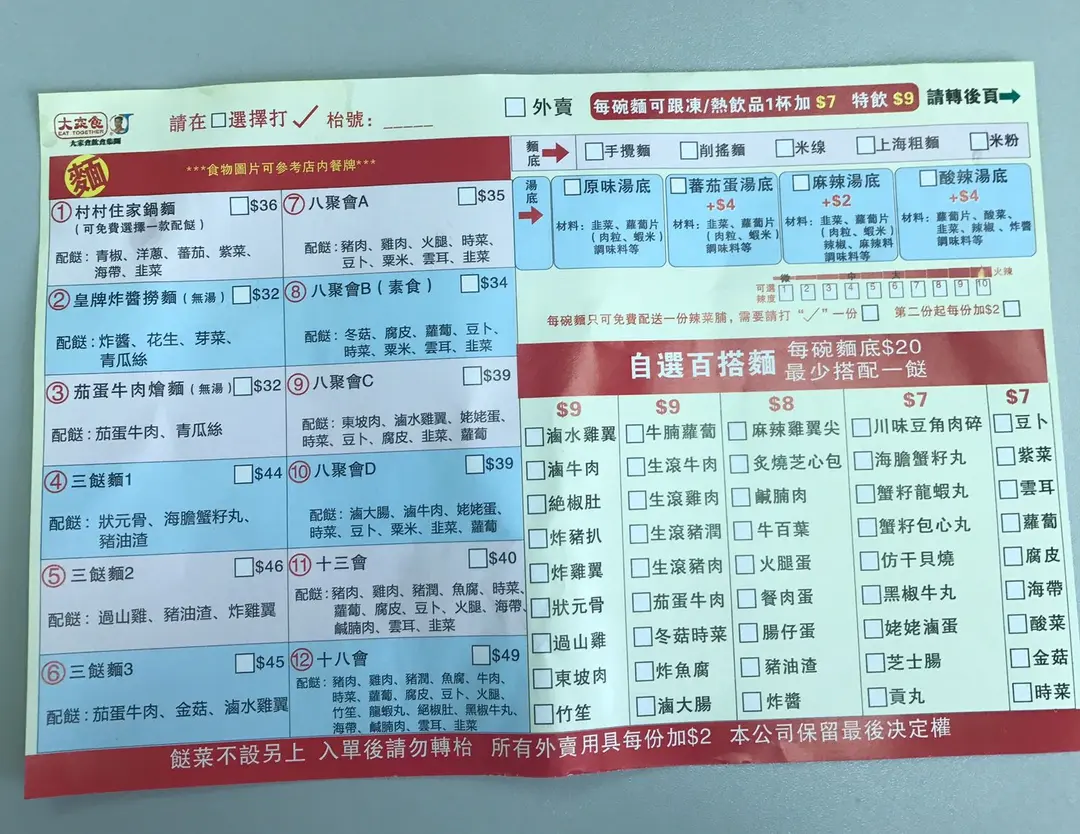 大家食
EAT TOGETHER
大家食飲食集團
請在□選擇打✓ 枱號：_____
□外賣
每碗麵可跟凍/熱飲品1杯加 $7 特飲 $9
請轉後頁→
麵
***食物圖片可參考店内餐牌***
①村村住家鍋麵 □$36
(可免費選擇一款配餸)
配餸：青椒、洋蔥、蕃茄、紫菜、
海帶、韭菜
②皇牌炸醬撈麵(無湯) □$32
配餸：炸醬、花生、芽菜、
青瓜絲
③茄蛋牛肉燴麵(無湯) □$32
配餸：茄蛋牛肉、青瓜絲
④三餸麵1 □$44
配餸：狀元骨、海膽蟹籽丸、
豬油渣
⑤三餸麵2 □$46
配餸：過山雞、豬油渣、炸雞翼
⑥三餸麵3 □$45
配餸：茄蛋牛肉、金菇、滷水雞翼
⑦八聚會A □$35
配餸：豬肉、雞肉、火腿、時菜、
豆卜、粟米、雲耳、韭菜
⑧八聚會B(素食) □$34
配餸：冬菇、腐皮、蘿蔔、豆卜、
時菜、粟米、雲耳、韭菜
⑨八聚會C □$39
配餸：東坡肉、滷水雞翼、姥姥蛋、
時菜、豆卜、腐皮、韭菜、蘿蔔
⑩八聚會D □$39
配餸：滷大腸、滷牛肉、姥姥蛋、
時菜、豆卜、粟米、韭菜、蘿蔔
⑪十三會 □$40
配餸：豬肉、雞肉、豬潤、魚腐、時菜、
蘿蔔、腐皮、豆卜、火腿、海帶、
鹹腩肉、雲耳、韭菜
⑫十八會 □$49
配餸：豬肉、雞肉、豬潤、魚腐、牛肉、
時菜、蘿蔔、腐皮、豆卜、火腿、
竹笙、龍蝦丸、絕椒肚、黑椒牛丸、
海帶、鹹腩肉、雲耳、韭菜
麵底→ □手攪麵 □削搖麵 □米缐 □上海粗麵 □米粉
湯底→
□原味湯底
材料：韭菜、蘿蔔片
(肉粒、蝦米)
調味料等
□蕃茄蛋湯底
+$4
材料：韭菜、蘿蔔片
(肉粒、蝦米)
調味料等
□麻辣湯底
+$2
材料：韭菜、蘿蔔片
(肉粒、蝦米)
辣椒、麻辣料
調味料等
□酸辣湯底
+$4
材料：蘿蔔片、酸菜、
韭菜、辣椒、炸醬
調味料等
微 中 大 火辣
可選辣度 1 2 3 4 5 6 7 8 9 10
每碗麵只可免費配送一份辣菜脯，需要請打“✓”一份□ 第二份起每份加$2□
自選百搭麵 每碗麵底$20
最少搭配一餸
$9
□滷水雞翼
□滷牛肉
□絕椒肚
□炸豬扒
□炸雞翼
□狀元骨
□過山雞
□東坡肉
□竹笙
$9
□牛腩蘿蔔
□生滾牛肉
□生滾雞肉
□生滾豬潤
□生滾豬肉
□茄蛋牛肉
□冬菇時菜
□炸魚腐
□滷大腸
$8
□麻辣雞翼尖
□炙燒芝心包
□鹹腩肉
□牛百葉
□火腿蛋
□餐肉蛋
□腸仔蛋
□豬油渣
□炸醬
$7
□川味豆角肉碎
□海膽蟹籽丸
□蟹籽龍蝦丸
□蟹籽包心丸
□仿干貝燒
□黑椒牛丸
□姥姥滷蛋
□芝士腸
□貢丸
$7
□豆卜
□紫菜
□雲耳
□蘿蔔
□腐皮
□海帶
□酸菜
□金菇
□時菜
餸菜不設另上 入單後請勿轉枱 所有外賣用具每份加$2 本公司保留最後決定權